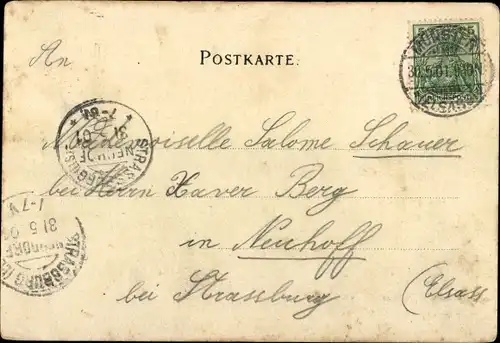 POSTKARTE.
An
Mademoiselle Salome Schauer
bei Herrn Xaver Berg
in Neuhoff
bei Strassburg (Elsass
MÜNSTER
30.5.01.
(ELSASS)
STRASSBURG
NEUHOF
31 5 01
7-8V.
STRASSBURG
NEUDORF
31.5.01
1-7V